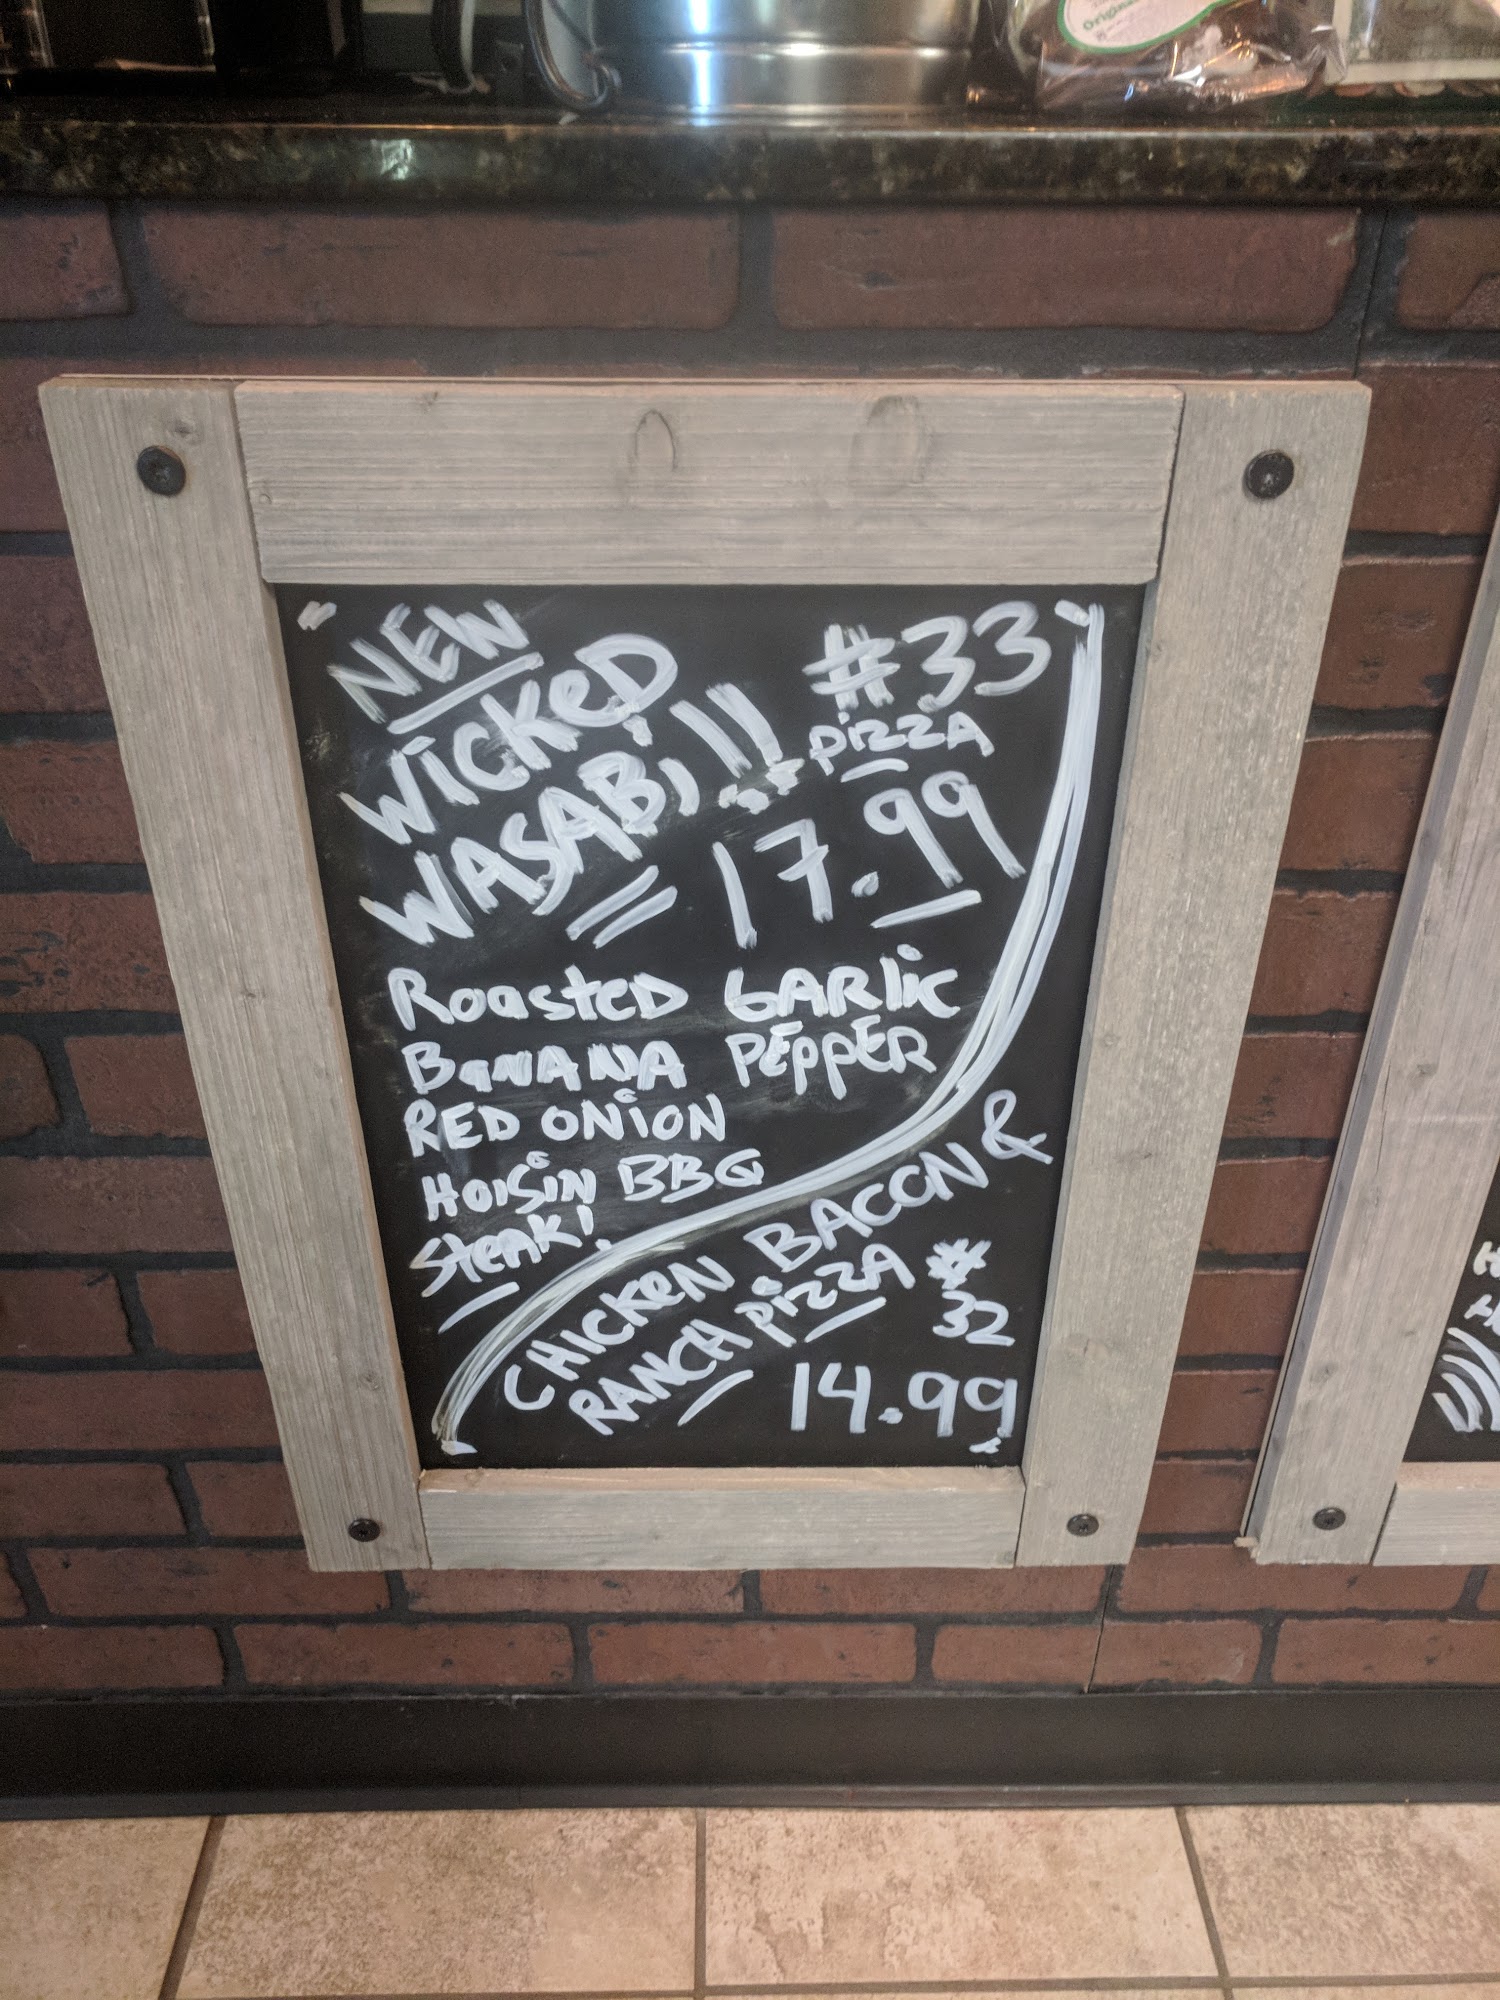 Original
NEW
WICKED
WASABI!!
#33
PIZZA
17.99
ROASTED GARLIC
BANANA PEPPER
RED ONION
HOISIN BBQ
STEAK!
CHICKEN BACON &
RANCH PIZZA #
32
14.99